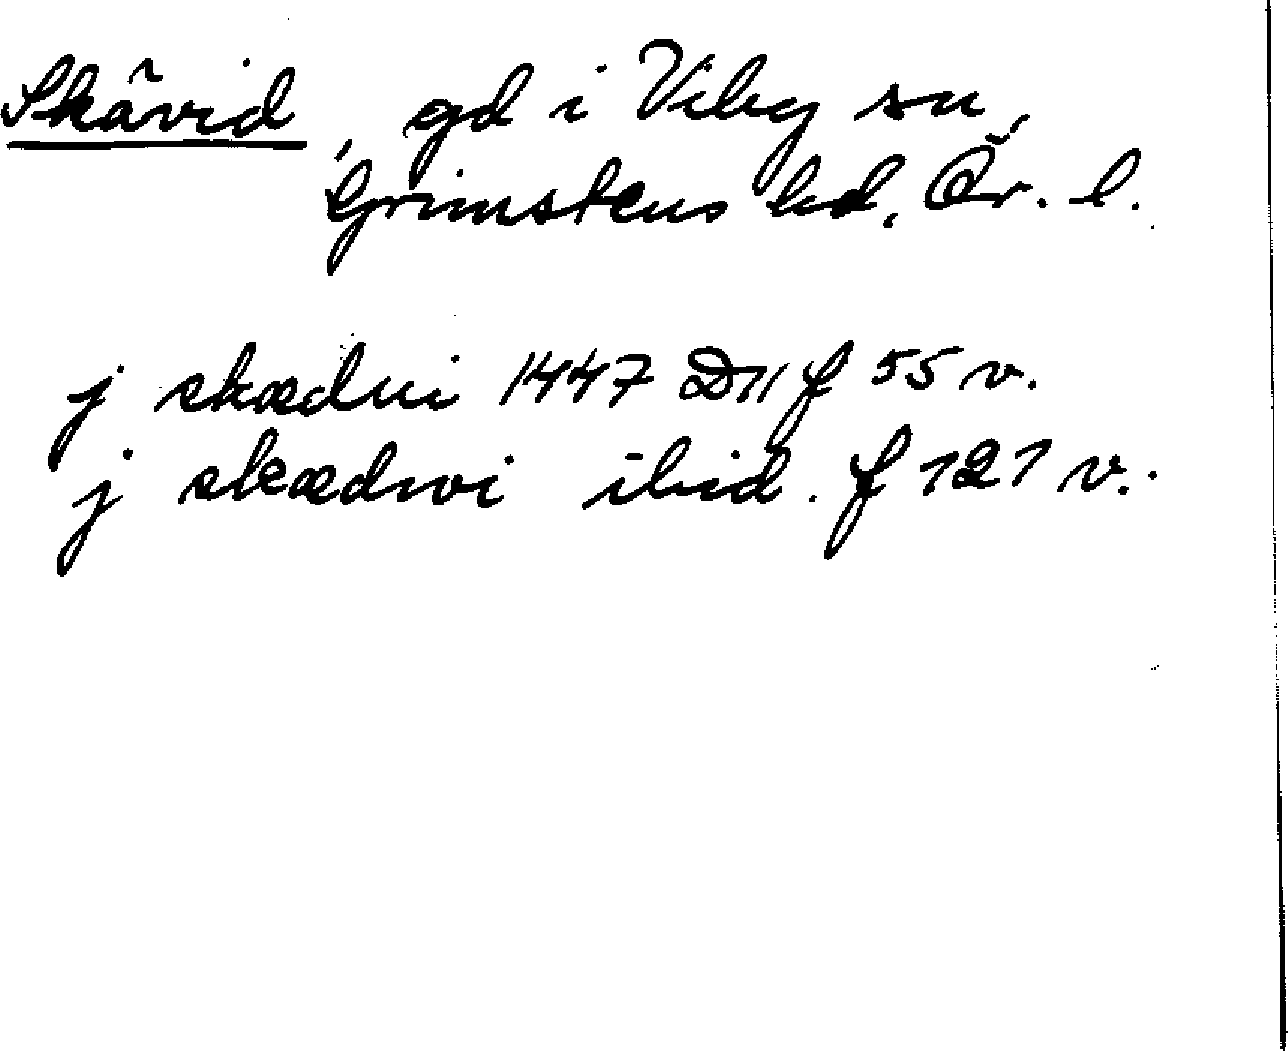 Skävid, gd i Viby sn,
Grimstens hd, Ör. l.
j skædui 1447 D11 f 55 v.
j skædwi ibid. f 121 v.